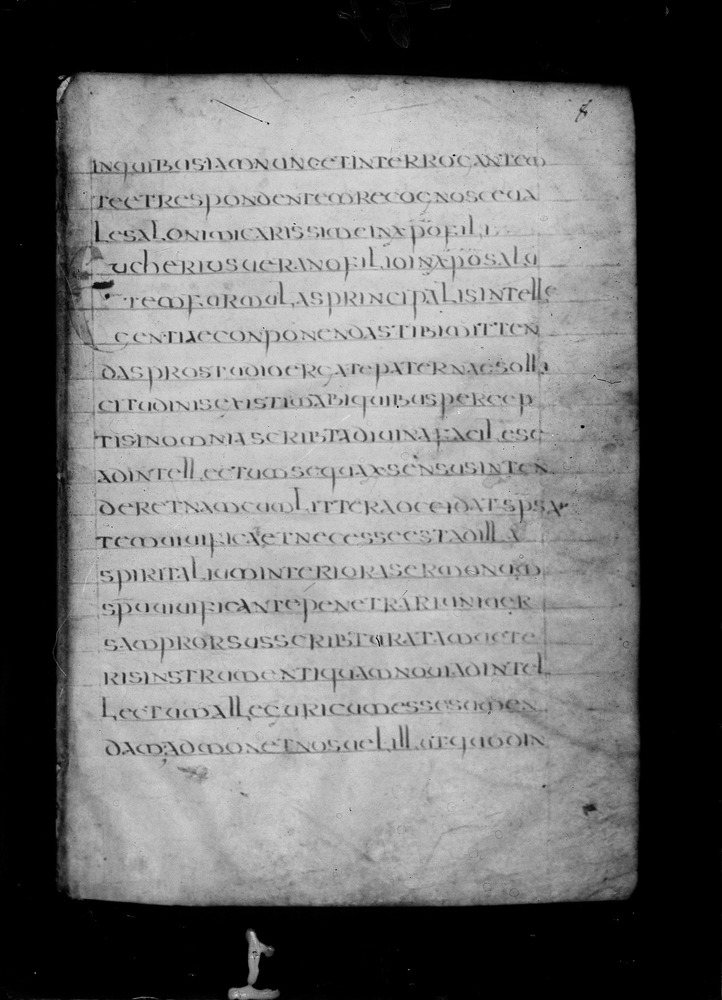 8
INQUIBUSIAMNUNCETINTERROGANTEM
TEETRESPONDENTEMRECOGNOSCEUA
LESALONIMICARISSIMEINXP̄OFILI
UCHERIUSUERANOFILIOINXP̄OSALU
TEMFORMULASPRINCIPALISINTELLE
GENTIAECONPONENDASTIBIMITTEN
DASPROSTUDIOERGATEPATERNAESOLLI
CITUDINISEXISTIMABIQUIBUSPERCEP
TISINOMNIASCRIBTADIUINAFACILESE
ADINTELLECTUMSEQUAXSENSUSINTEN
DERETNAMCUMLITTERAOCCIDATSPSAU
TEMUIUIFICAETNECESSEESTADILLA
SPIRITALIUMINTERIORASERMONUM
SPŪUIUIFICANTEPENETRARIUNIUER
SAMPRORSUSSCRIBTURATAMUETE
RISINSTRUMENTIQUAMNOUIADINTEL
LECTUMALLEGORICUMESSESUMEN
DAMADMONETNOSUELILLUTQUODIN
1